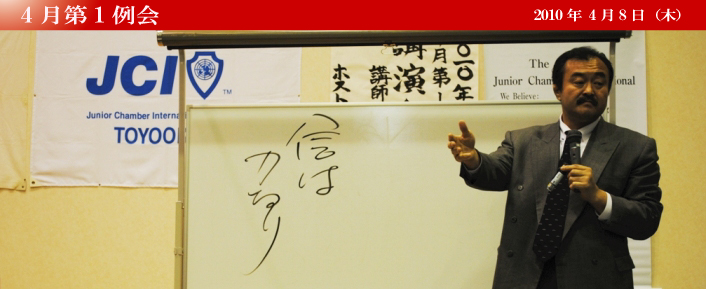 4月第1例会
2010年 4月8日（木）
JCI
TM
Junior Chamber Interna
TOYOO
〇一〇年
月第
講演
講師
ホスト
The
Junior Cham
onal
We Believe:
信は
力なり